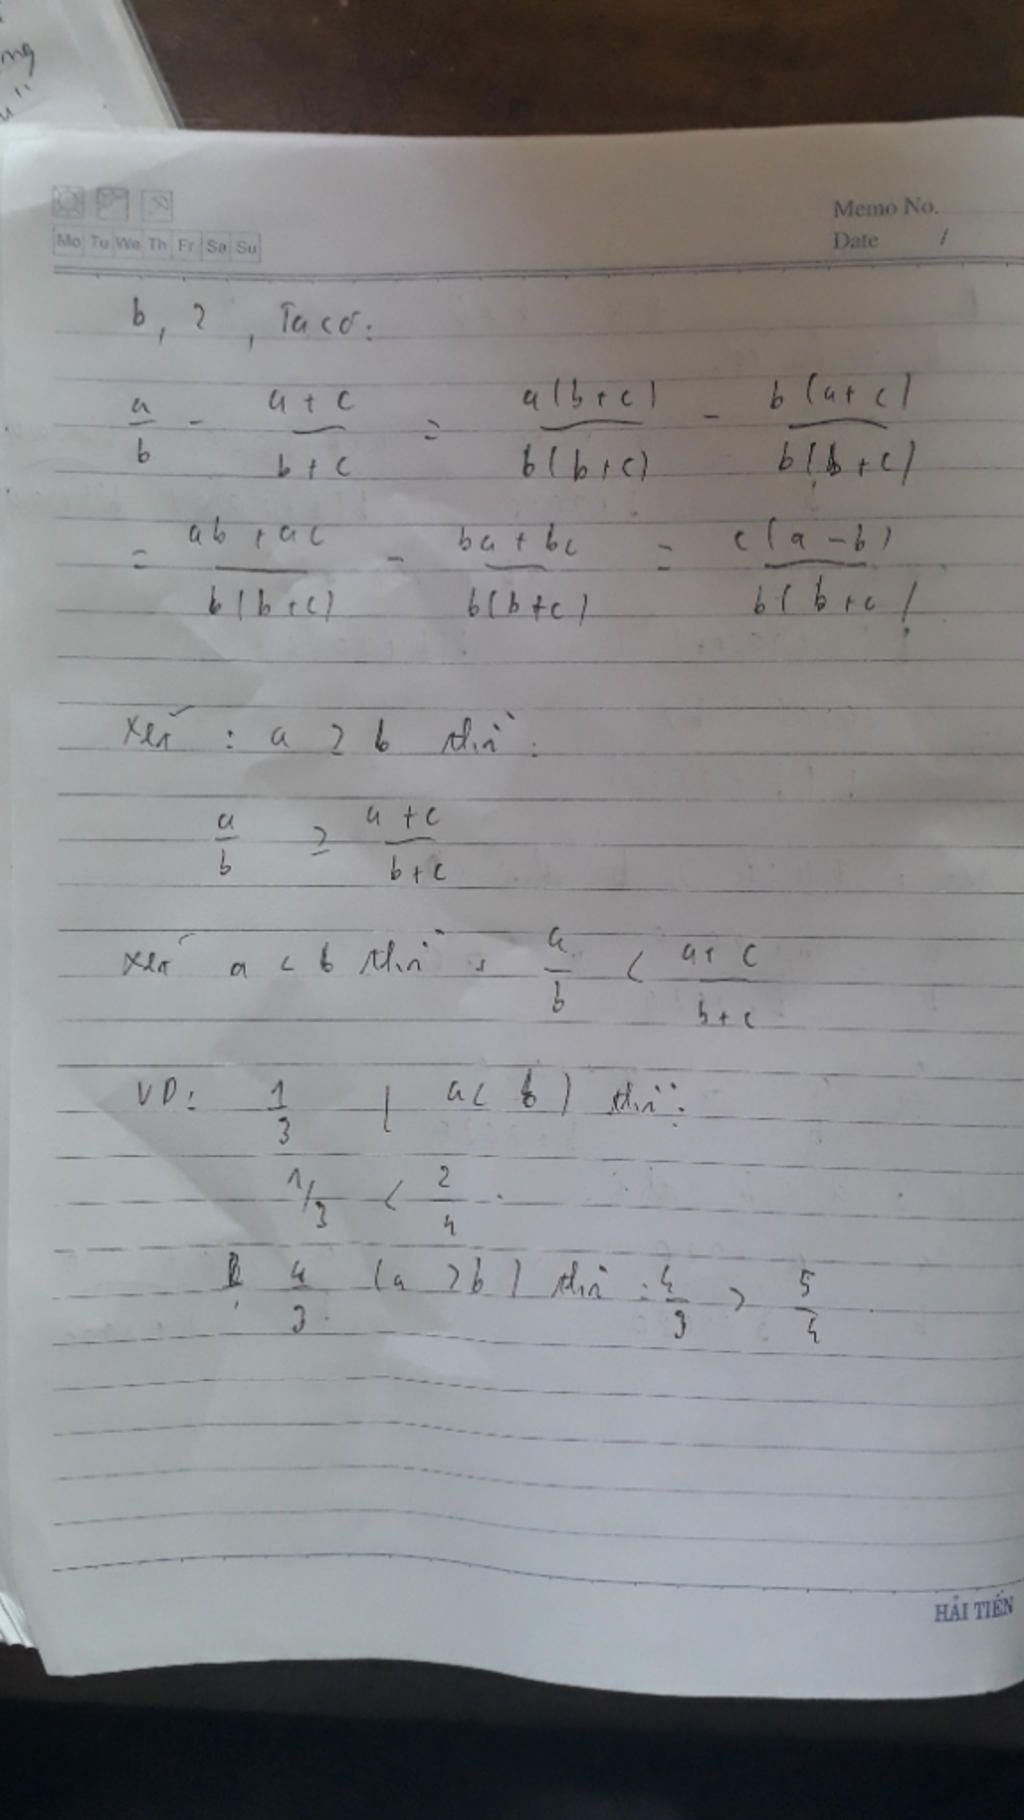 ng
Memo No.
Mo Tu We Th Fr Sa Su
Date /
b, 2, Ta có:
a/b - (a + c)/(b + c) = a(b + c)/b(b + c) - b(a + c)/b(b + c)
= (ab + ac)/b(b + c) - (ba + bc)/b(b + c) = c(a - b)/b(b + c)
Xét : a ≥ b thì :
a/b ≥ (a + c)/(b + c)
Xét a < b thì : a/b < (a + c)/(b + c)
VD: 1/3 ( a < b ) thì :
1/3 < 2/4 .
4/3 (a > b) thì : 4/3 > 5/4 .
HẢI TIẾN